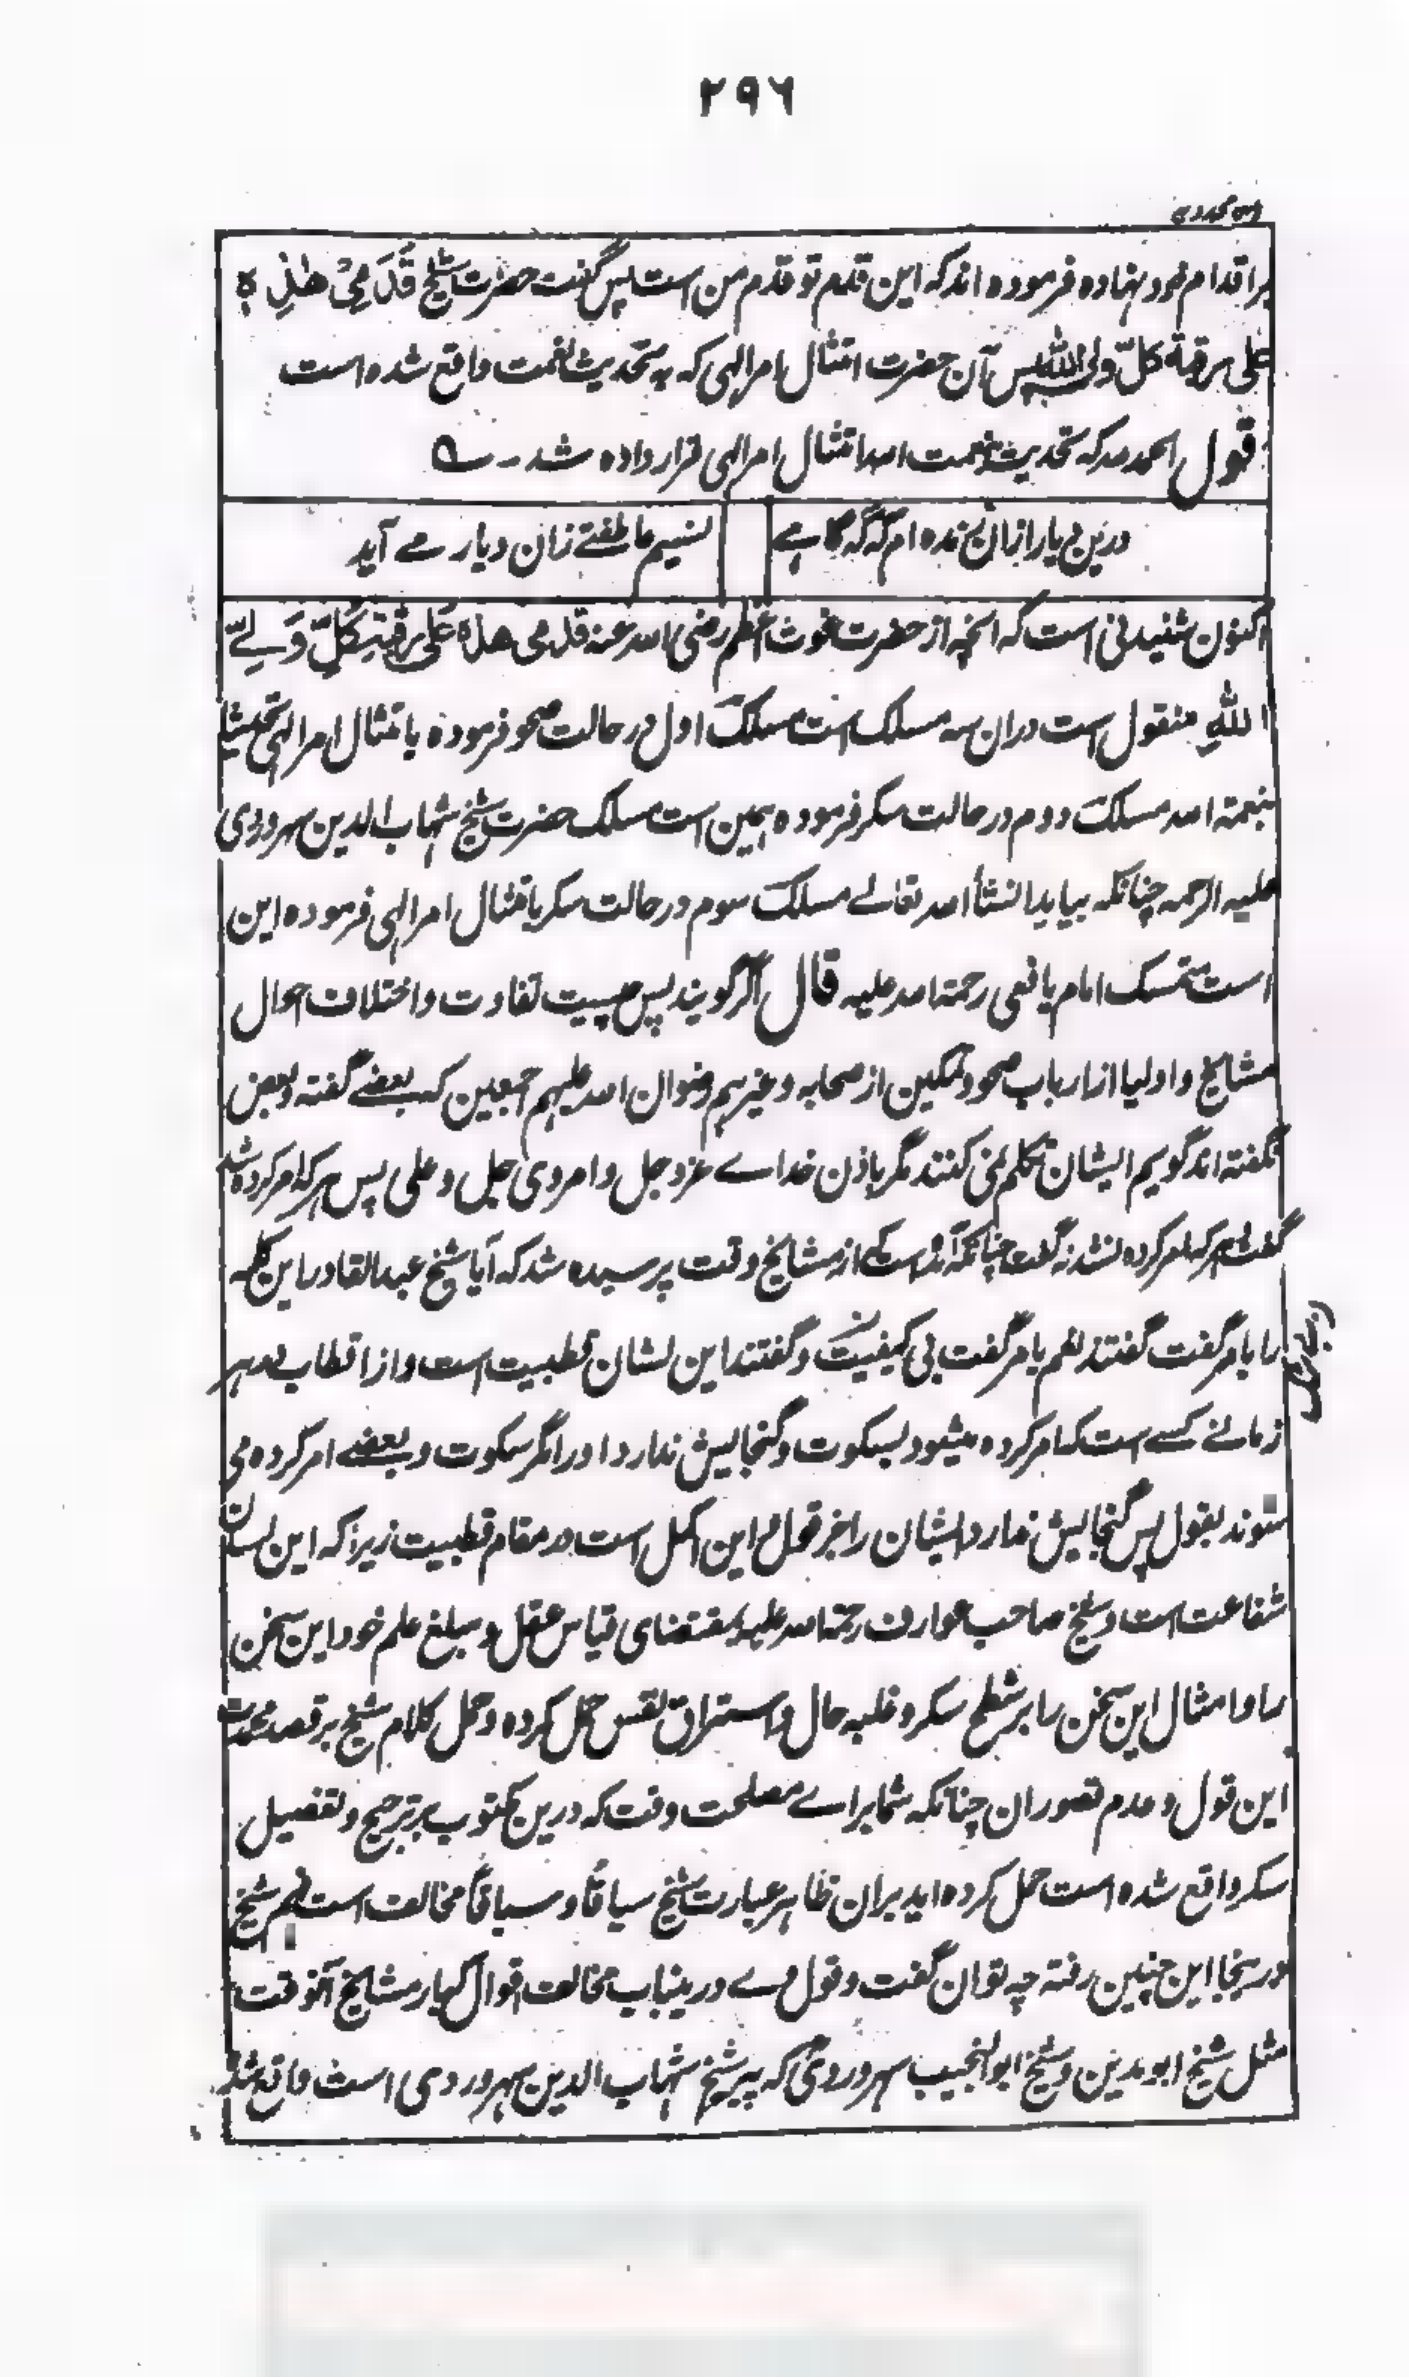 ۲۹۶
بر اقدام خود نهاده فرموده اند که این قدم تو قدم من است پس گفت حضرت شیخ قَدَمِیْ هٰذِہٖ
علی رقبة کلّ ولی اللّٰه پس آن حضرت امتثال امر الهی که به تحدیث نعمت واقع شده است
قول الحمد لله که تحدیث نعمت الله امتثال امر الهی قرار داده شد ـ ے
درین دیار ازان زنده ام که گه گاہے
نسیم عاطفتے زان دیار مے آید
اکنون شنیدنی است که انچه از حضرت غوث اعظم رضی الله عنه قدمی هذه عَلی رقبة کُلّ وَلِےّ
اللّٰهِ منقول است دران سه مسلک است مسلک اول در حالت صحو فرموده بامتثال امر الهی تحدیثا
بنعمة الله مسلک دوم در حالت سکر فرموده همین است مسلک حضرت شیخ شهاب الدین سهروردی
علیه الرحمه چنانکه بیاید انشأ الله تعالے مسلک سوم در حالت سکر بامتثال امر الهی فرموده این
است متمسک امام یافعی رحمة الله علیه قال اگر گویند پس چیست تفاوت و اختلاف احوال
مشایخ و اولیا از ارباب صحو و تمکین از صحابه و غیرهم رضوان الله علیهم اجمعین که بعضے گفته و بعض
نگفته اند گویم ایشان تکلم نمی کنند مگر باذن خداے عزوجل و امر وی جل و علی پس هر که امر کرده شد
گفت و هر که امر کرده نشد نه گفت چنانکه آمده است که از مشایخ وقت پرسیده شد که آیا شیخ عبدالقادر این کلمه
را بامر گفت گفتند نعم بامر گفت بی کیفیت و گفتند این لسان قطبیت است و از اقطاب در هر
زمانے کسے است که امر کرده میشود بسکوت و گنجایش ندارد او را مگر سکوت و بعضے امر کرده می
شوند بقول پس گنجایش ندارد ایشان را جز قول و این اکمل است در مقام قطبیت زیرا که این لسان
شفاعت است و شیخ صاحب عوارف رحمة الله علیه بمقتضای قیاس عقل و مبلغ علم خود این سخن
را و امثال این سخن را بر شطح سکر و غلبه حال و استراق نفس حمل کرده و حمل کلام شیخ بر قصد
این قول و عدم تصور ان چنانکه شما براے مصلحت وقت که درین مکتوب بر ترجیح و تفضیل
سکر واقع شده است حمل کرده اید بران ظاهر عبارت شیخ سیاقًا و سباقًا مخالف است شیخ
در ینجا این چنین رفته چه توان گفت و قول وے درینباب مخالف اقوال کبار مشایخ آنوقت
مثل شیخ ابو مدین و شیخ ابو النجیب سهروردی که پیر شیخ شهاب الدین سهروردی است واقع شد